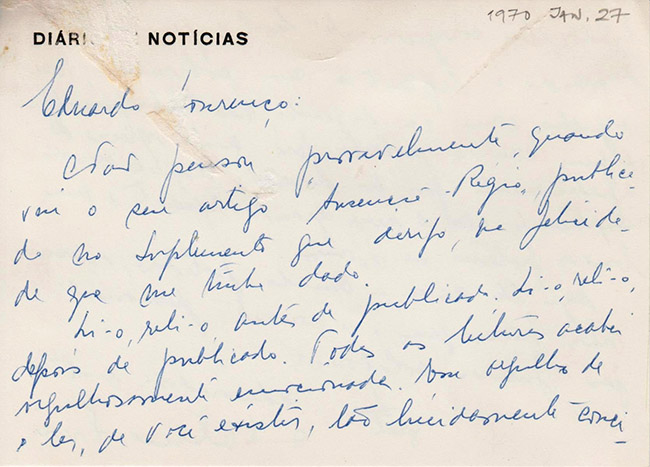 1970 JAN. 27
DIÁRI NOTÍCIAS
Eduardo ourenço:
Não pensou provavelmente, quando
viu o seu artigo "Ausência - Régio", publica-
do no Suplemento que dirijo, na felicida-
de que me tinha dado.
Li-o, reli-o antes de publicado. Li-o, reli-o,
depois de publicado. Todas as leituras acabei
orgulhosamente emocionada. Esse orgulho de
o ler, de você existir, tão lucidamente consci-